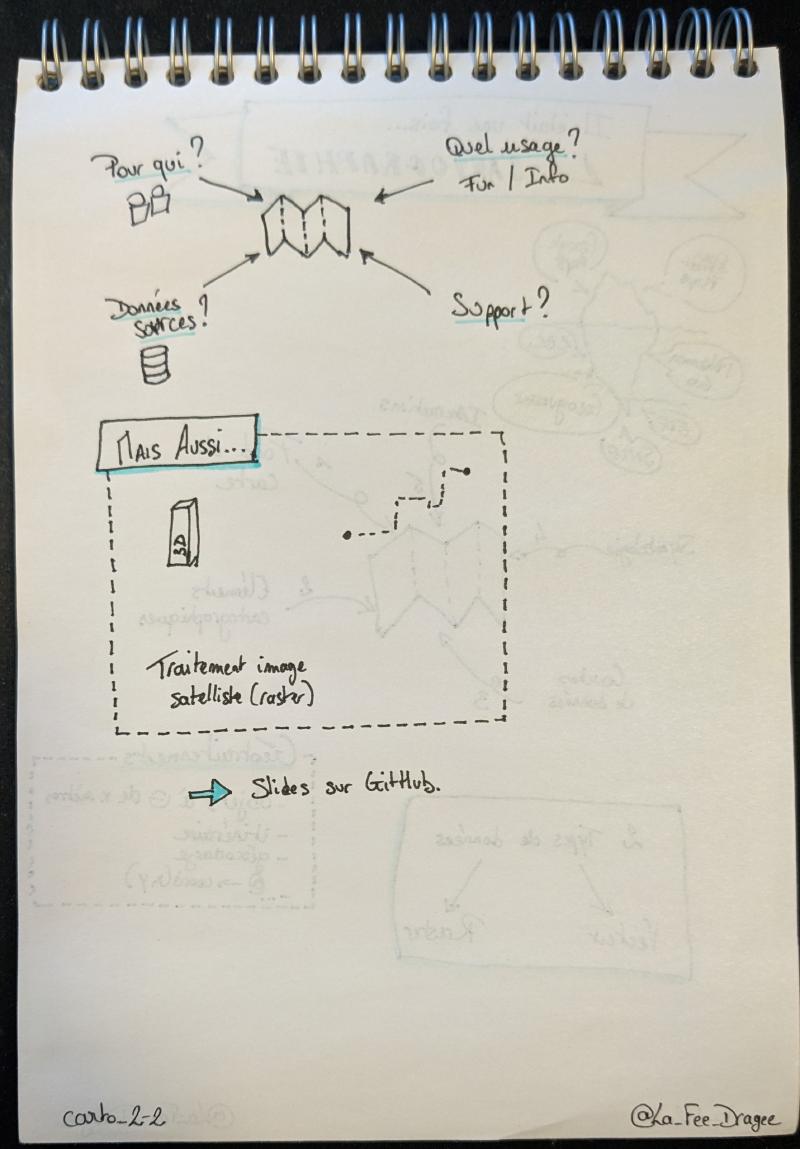 Pour qui ?
Quel usage ?
Fun / Info
Données
sources ?
Support ?
Mais Aussi...
3D
Traitement image
satelliste (raster)
Slides sur GitHub.
carto_2-2
@La_Fee_Dragee